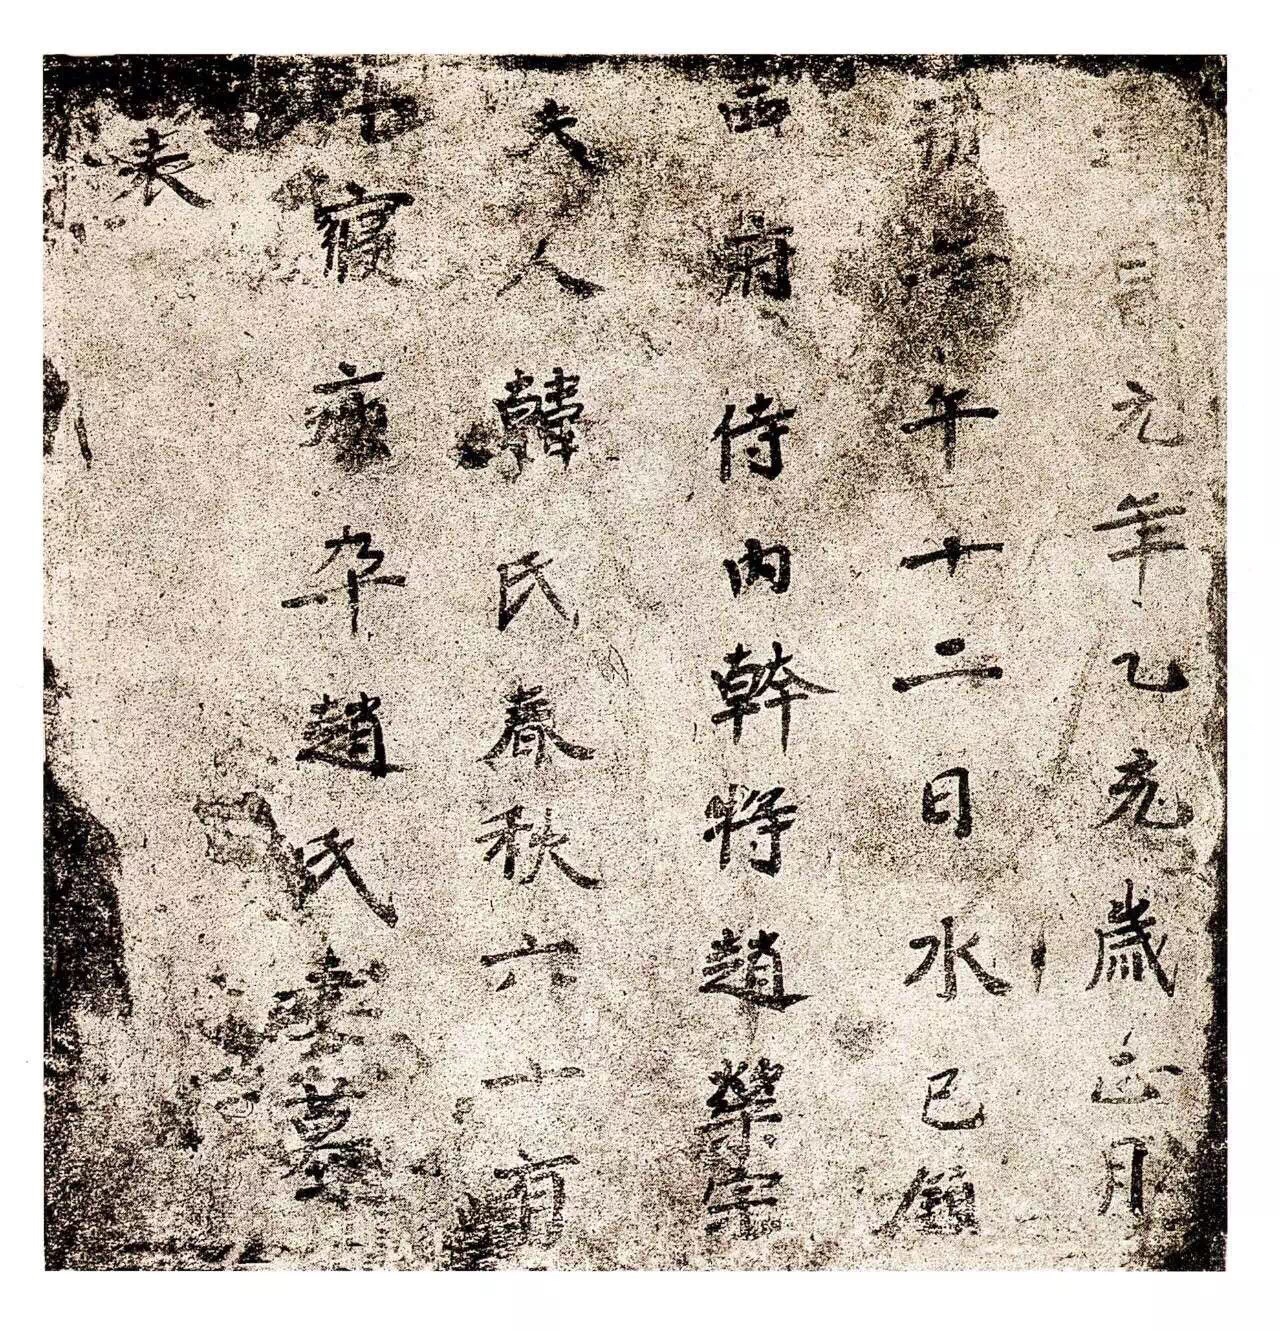 昌元年乙亥歲正月
朔午十二日水巳鎮
西府侍內幹將趙榮宗
夫人韓氏春秋六十有
七寢疾卒趙氏妻墓
表